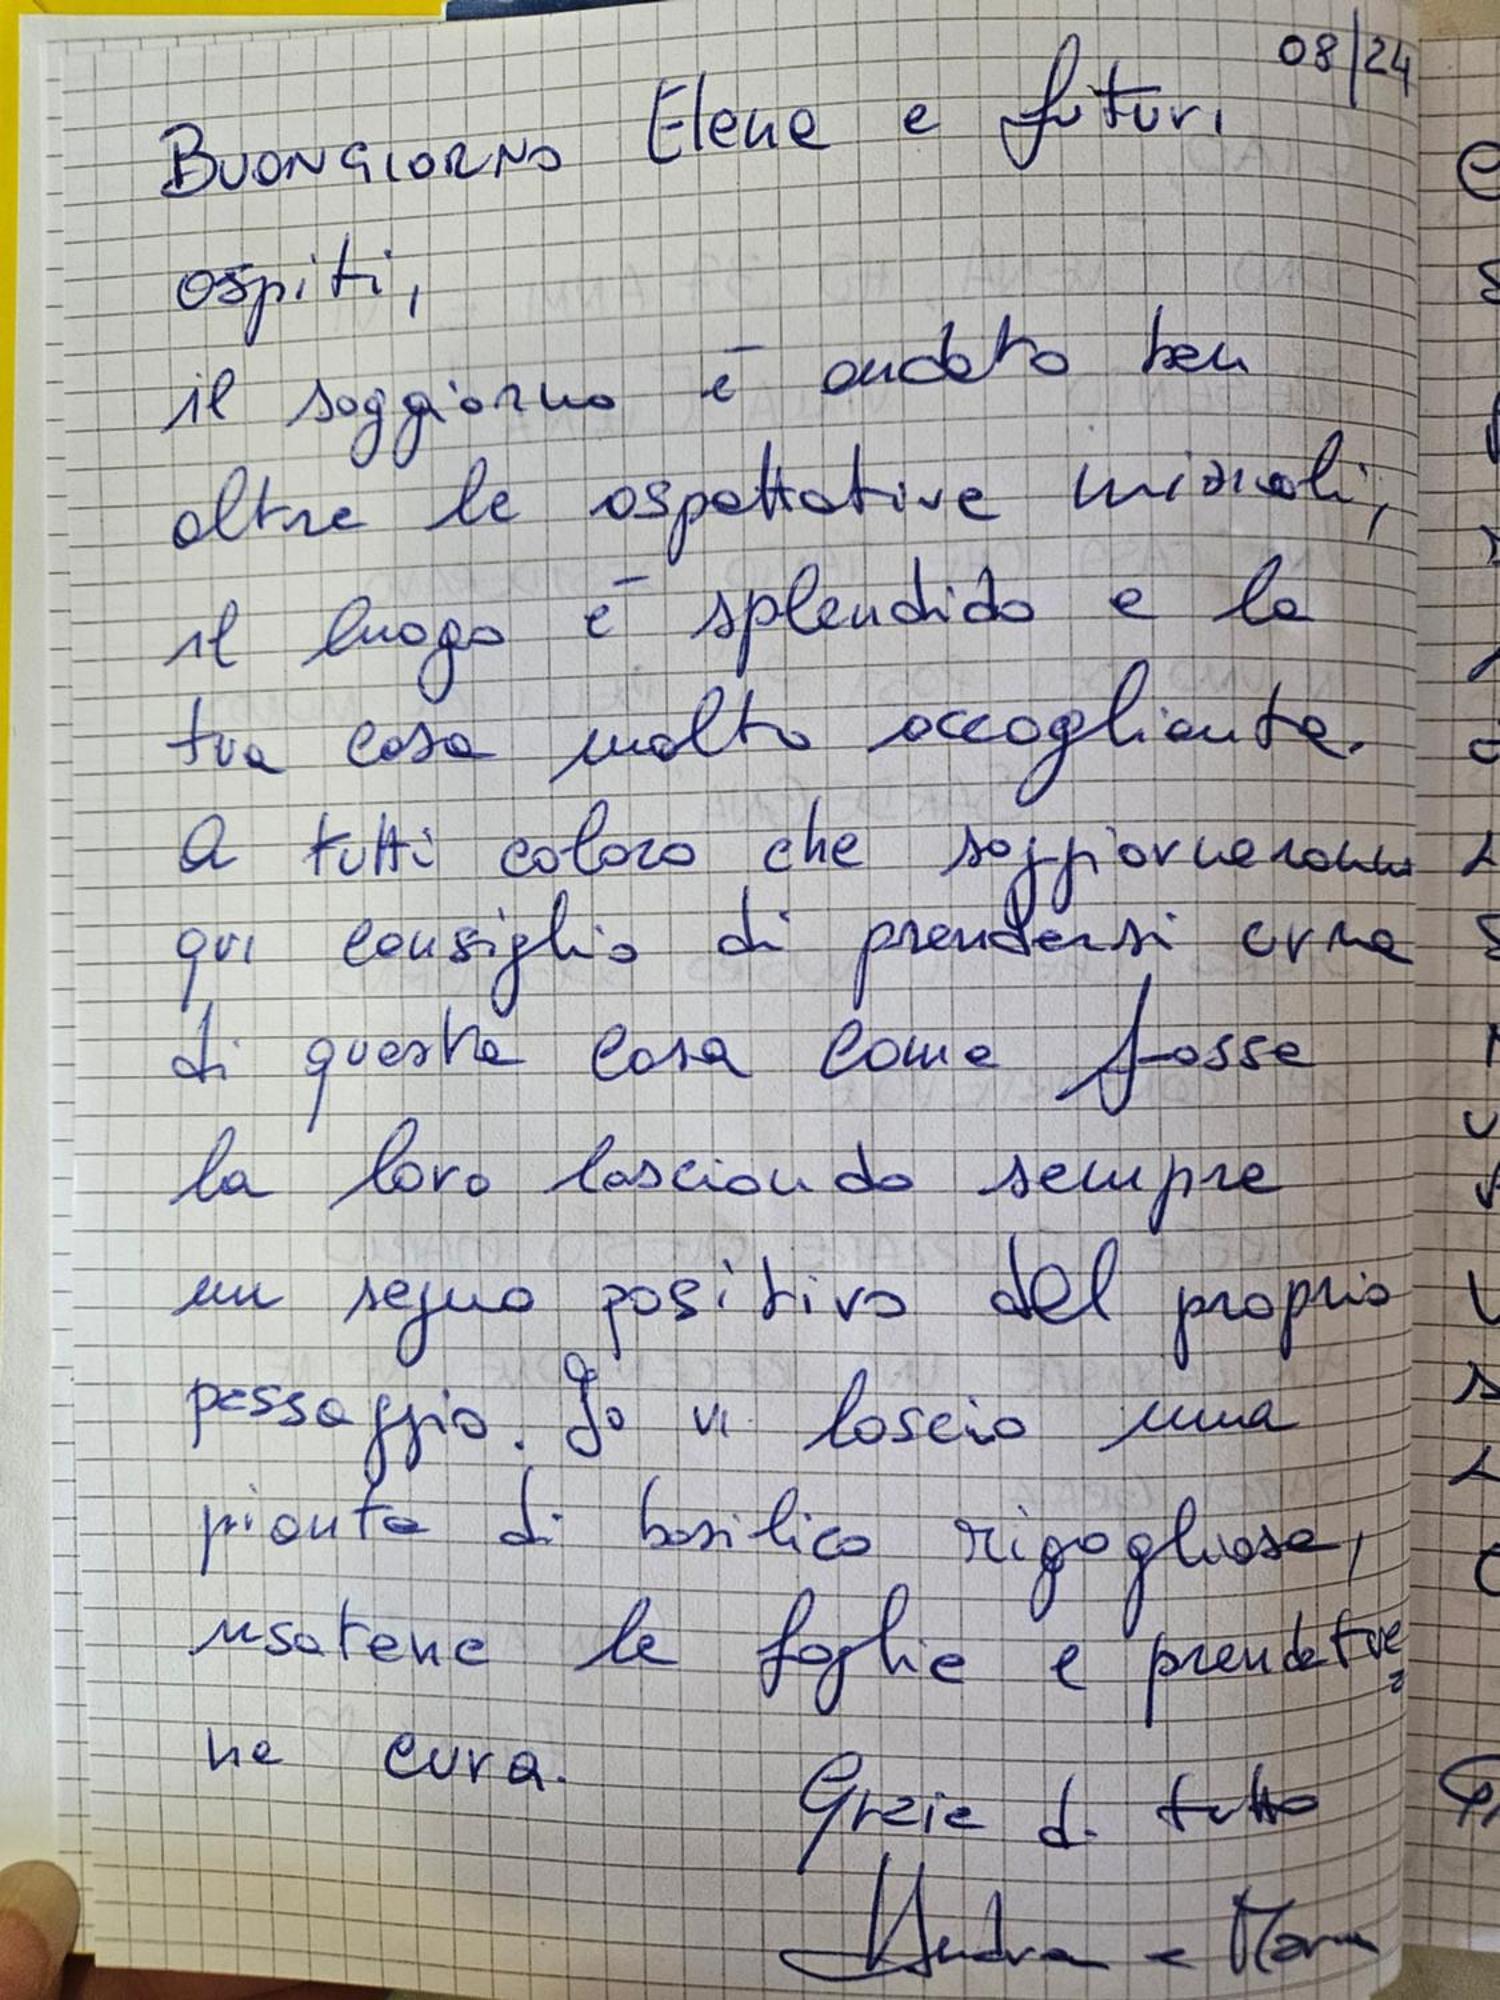 08/24
BUONGIORNO Elena e futuri
ospiti,
il soggiorno è andato ben
oltre le aspettative iniziali,
il luogo è splendido e la
tua casa molto accogliente.
A tutti coloro che soggiorneranno
qui consiglio di prendersi cura
di questa casa come fosse
la loro lasciando sempre
un segno positivo del proprio
passaggio. Io vi lascio una
pianta di basilico rigogliosa,
usatene le foglie e prendete
ne cura.
Grazie di tutto
Andrea e